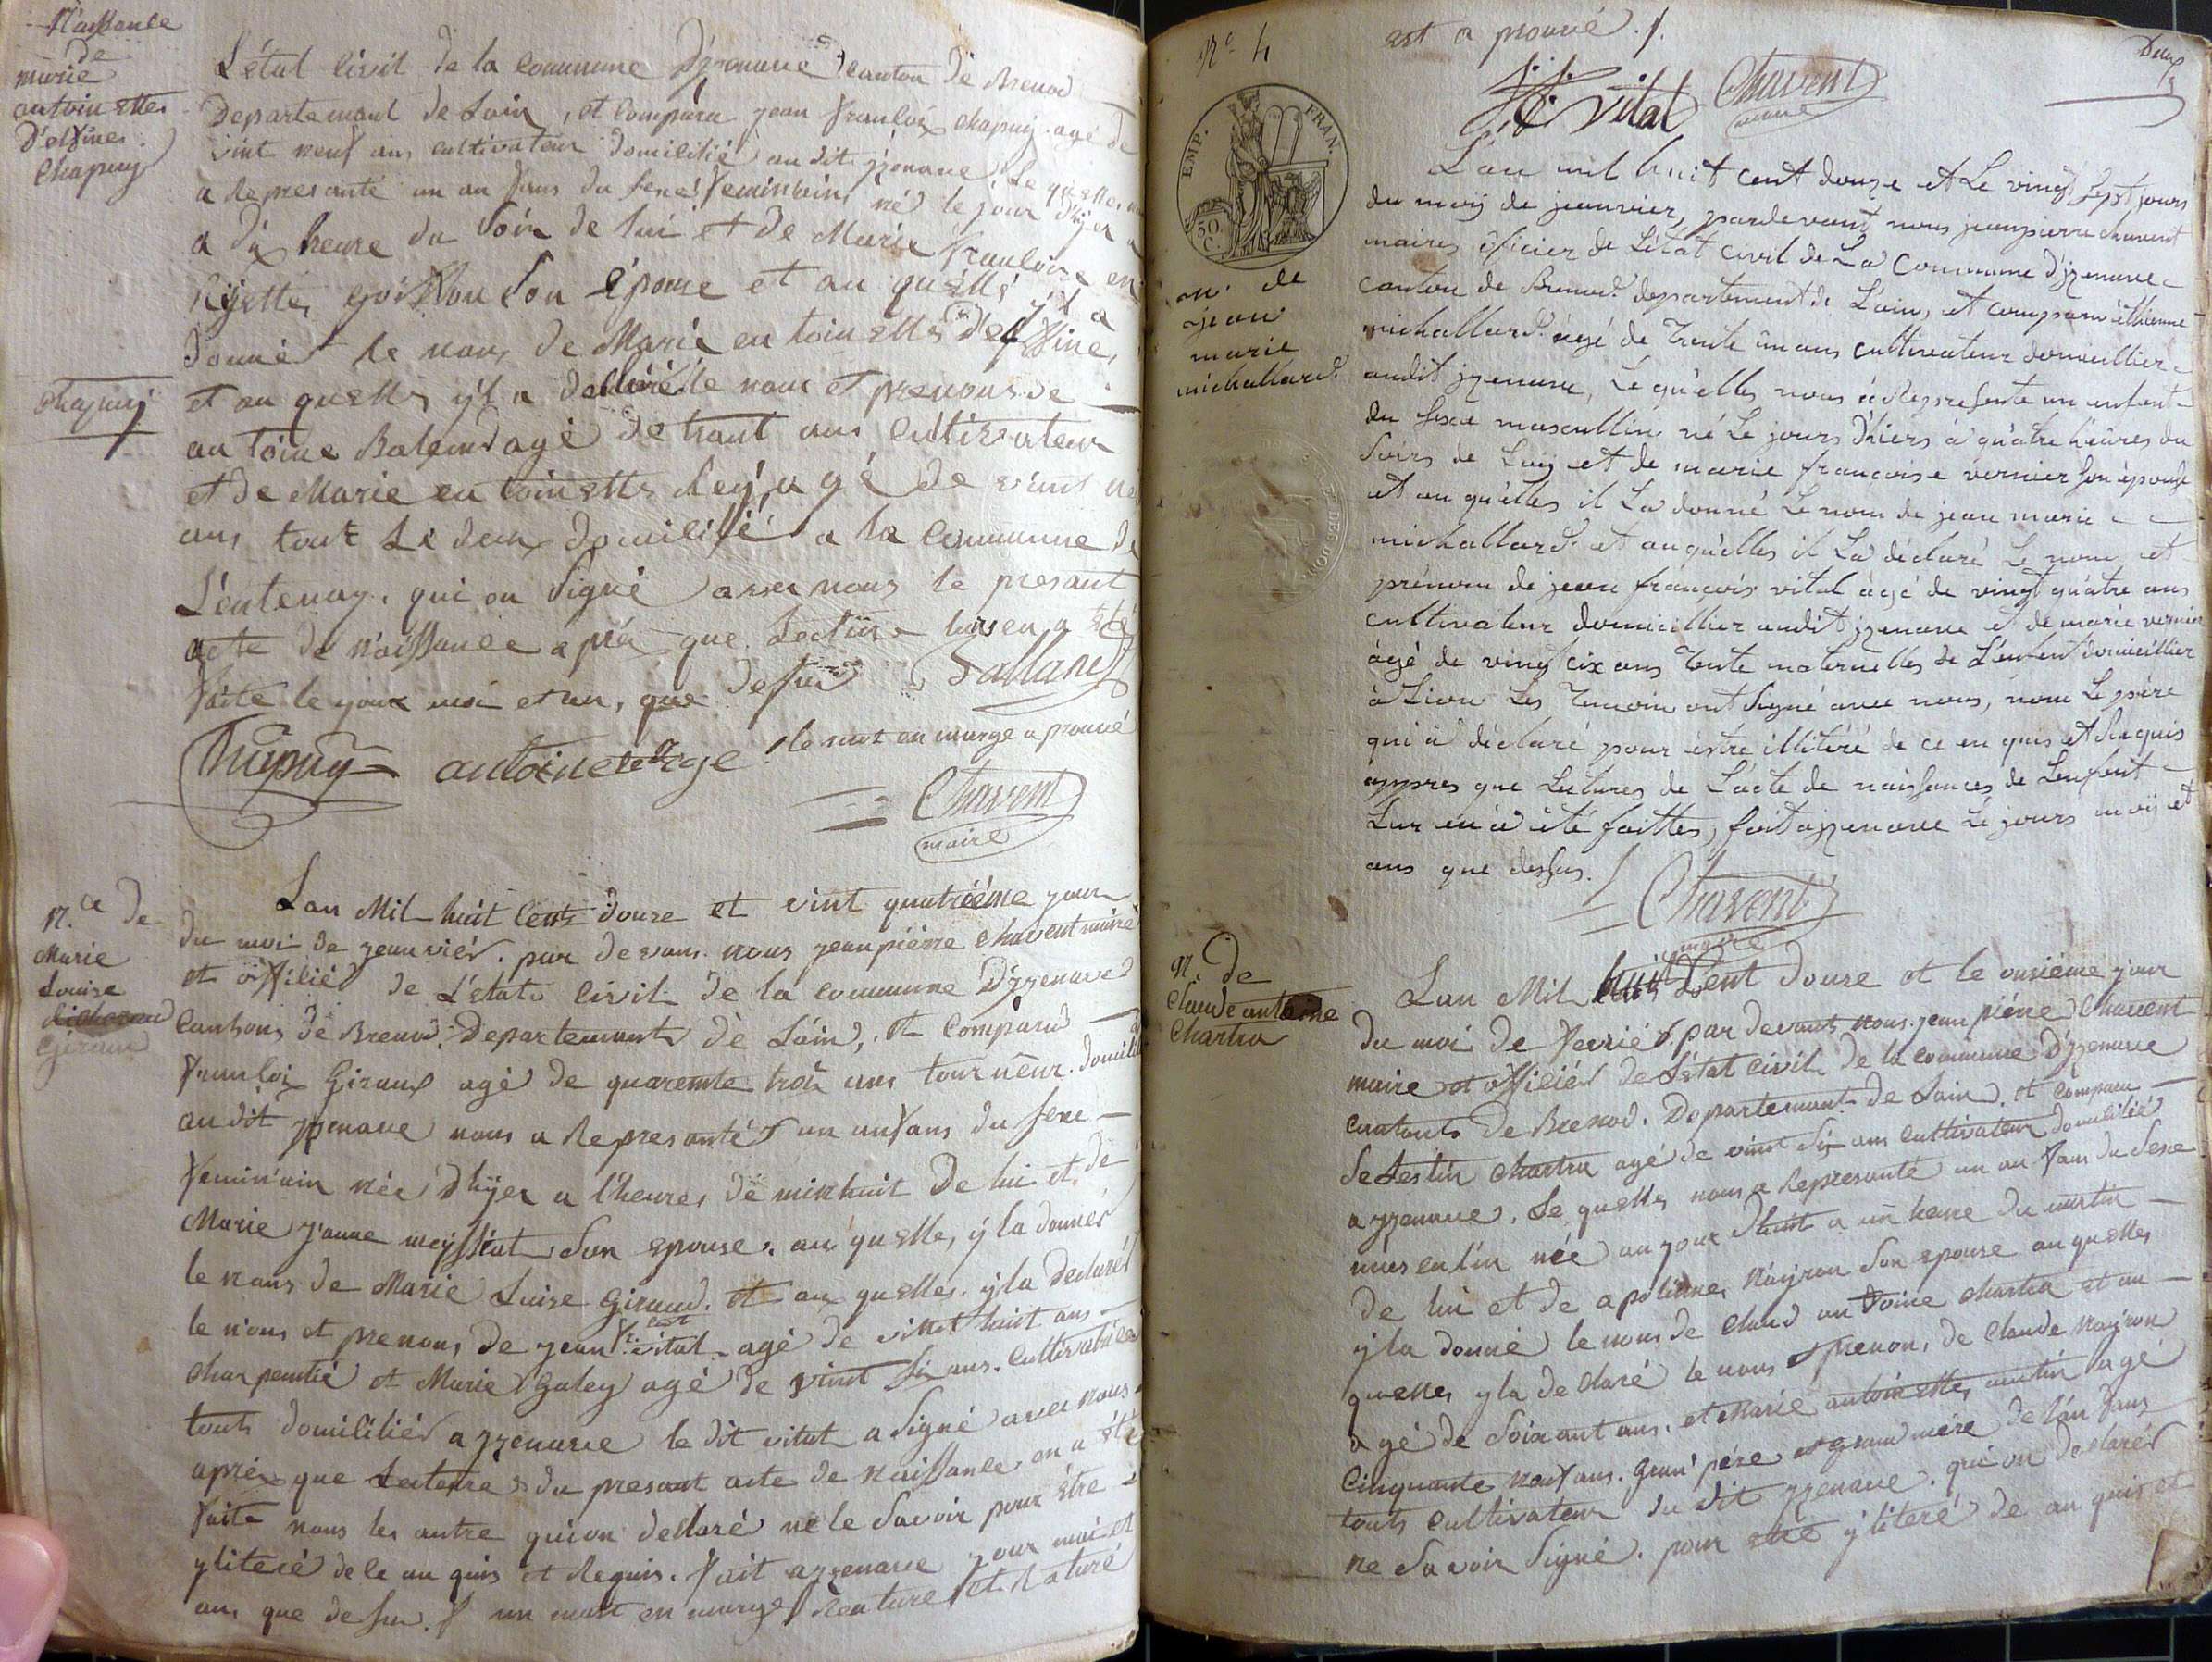 Naissance
de
marie
antoinettes
D'elfines
Chapuy
L'état Civil de la commune D'izenave Canton De Brenod
Departemant de Lain, et Comparu jean franloix chapuy agé de
vint neuf ans cultivateur domicilié au dit izenave, Le quelles
a Represanté un an fans du sexe feminin né le jour d'hÿer
a dix heure du Soir de lui et de Marie franloise
son Epouse et au quelle y'l a
donné le nom de Marie en toinette delfine,
et au quelles y'l a déclaré le nom et prenons de
chapuy
an toine agé de trant ans Cultivateur
et de Marie en toinette Rey, agé de vint
ans tout Le deux domicilié a la Commune De
Lentenay, qui on Signé avec nous le presant
acte de naissance aprés que Lecture leurs en a Eté
faite le jour moi et an, que desus
Chapuy antoine le mot en marge a prouvé
Chavent
maire
N.ce de
Marie
Louise
Giraud
Lan Mil huit Cent douze et vint quatriéme jour
du moi de jeanviér. par devans nous jean piérre Chavent maire
et offilié de L'état Civil de la commune D'izenave
Cantons De Brenod, Departemant de Lain, et Comparu
franloix Giraud agé de quarente troix ans tourneur domicilié
au dit izenave nous a Represanté un anfans du sexe
feminain née d'hÿer a l'heure, de minhuit De lui et de
Marie j'anne Son epouse, au quelle, y la donnér
le nom de Marie Luise Giraud. et au quelles y la declarér
le n'om et prenons, de jean f. vital agé de vint huit ans
Charpentié et Marie Galey agé de vint six ans. Cultivatrice
touts domicilié a izenave le dit vital a Signé avec nous
apréz que Lecture du presant acte de naissance on a été
faite nous les autre qui on dellaré ne le Savoir pour être
yliteré de le an quis et Requis. fait a izenave jour moi et
an, que desu. un mots en marge et Raturé
N.o 4
est a prouvé ./.
J. f. Vital Chavent
maire
Deux
EMP. FRAN.
50 C.
N. de
jean
marie
michallard
L'an mil huit cent douze et Le vingt sept jours
du moy de jeanvier, pardevant nous jeanpierre chavent
maires oficier de L'état Civil de La Commune d'izenave
canton de Brenod departement de L'ain, et comparu éthienne
michallard agé de Trente un ans cultivateur domicillier
audit izenave, Le quelles nous à Représente un enfent
du sexe mascullin né Le jours d'hiers à quatre heures du
Soirs de Luy et de marie françoise vernier son épouse
et au quelles il La donné Le nom de jean marie
michallard. et auquelles il La déclaré Le nom et
prénom de jean françois vital agé de vingt quatre ans
cultivateur domicillier audit izenave et de marie vernier
âgé de vingt cix ans Tente maternelles de L'enfent domicillier
à Lion Les Temoin ont Signé avec nous, nom Le père
qui à déclaré pour être illitéré de ce en quis et Requis
appres que Lectures de L'acte de naissances de L'enfent
Lur en à été faittes, fait a izenave Le jours moy et
ans que dessus.
Chavent
maire
N. de
Claude antoine
Chartra
Lan Mil huit Cent douze et le onsiéme jour
du moi de fevrié par devant nous jean piére Chavent
maire et offilié de L'état Civil de la commune D'izenave
Cantonts De Brenod. Departemant de Lain, et Comparu
Selestin Chartra agé de vint six ans Cultivateur domicilié
a izenave. Le quelle, nous a Represanté un an fans du Sexe
née au jour a un heure du matin
De lui et de apoliene, Nayron Son epouse au quelles
y la donné le nons de Claud an toine Chartra et au
quelles y la de claré le nons et prenon, de Claude Nayron
agé de Soixant ans. et Marie antoinette, agé
Cinquante neuf ans. gran' pére et grand mére de l'an fans
touts Cultivateur du dit izenave. qui on declarér
ne Savoir Signé. pour etre yliteré de an quis et